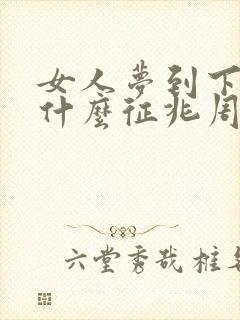 女人夢到下
什麼征兆周
六堂秀哉椎